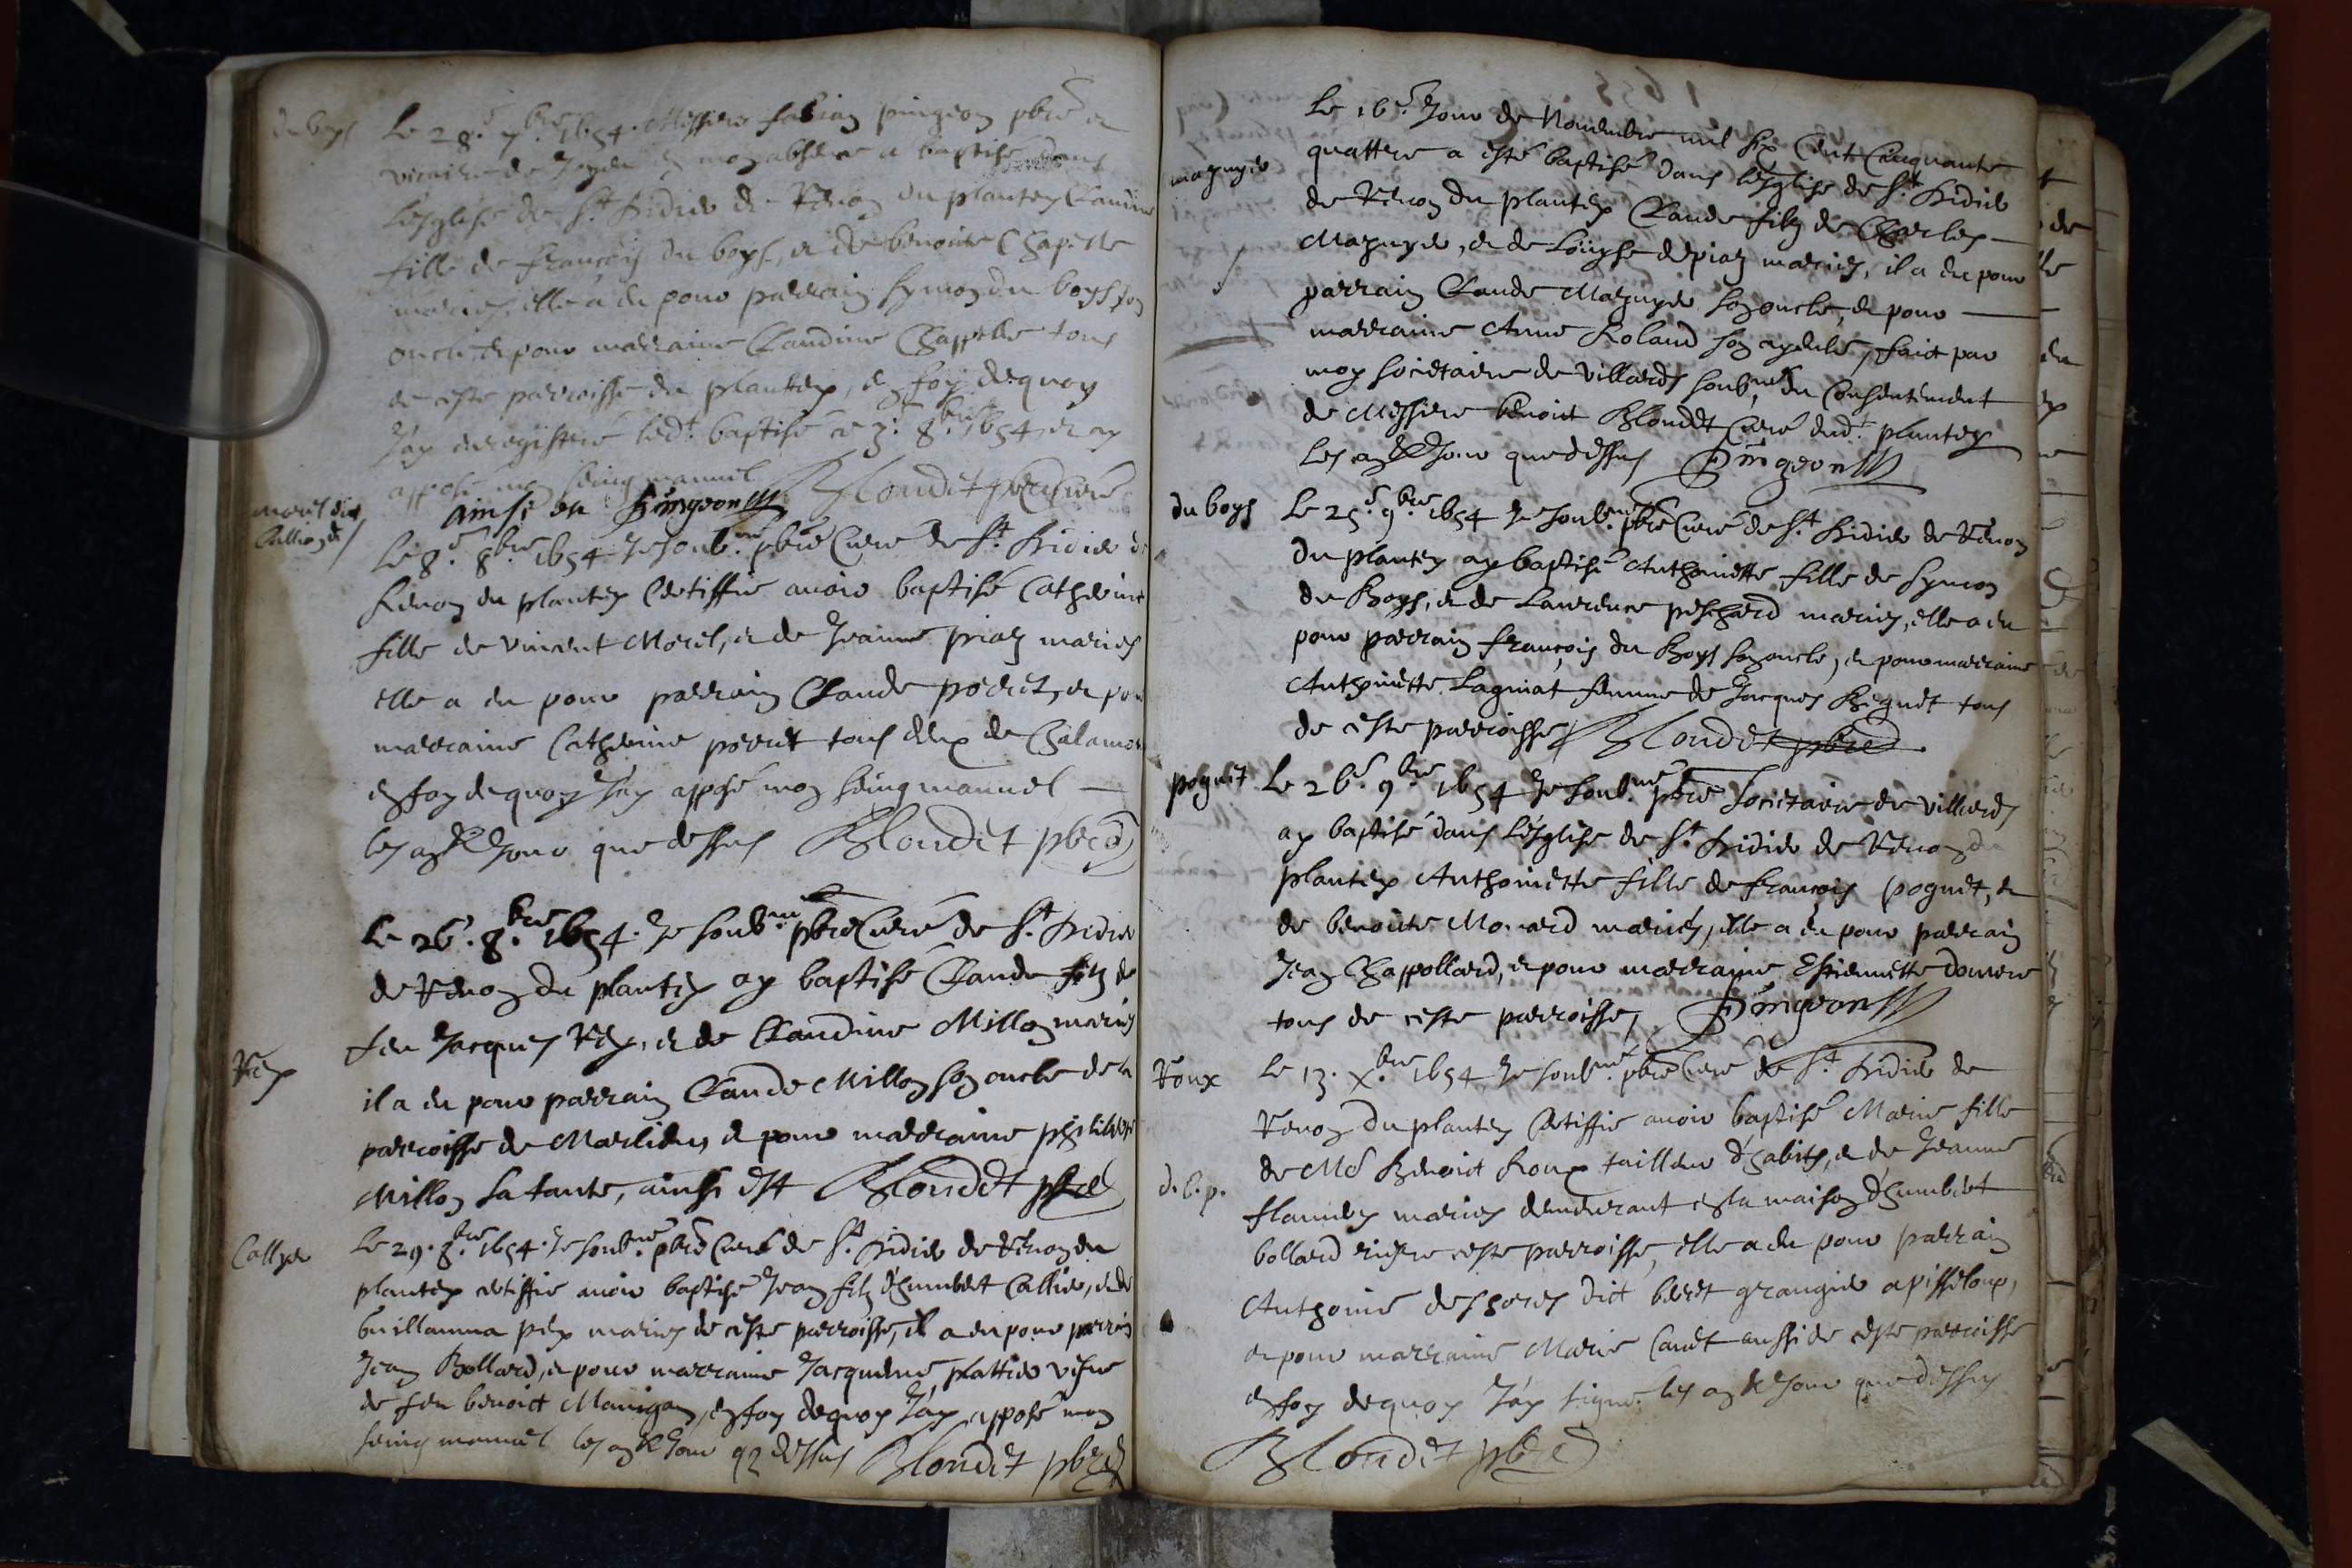 du boys
Le 28.e 7.bre 1654. Messire fabian pingeon pbre et
vicaire de en mon absence a baptisé dans
L'esglise de St Didier de Renon du plantey Claudine
fille de françois du boys, et de benoiste Chapelle
mariés, elle a eu pour parrain Symon du boys son
oncle, et pour marraine Claudine Chappelle tous
de ceste parroisse du plantey, en foy dequoy
J'ay enregistré led.t baptisé ce 3.e 8.bre 1654 et ay
apposé mon seing manuel Blondet pbre curé
ainsi est Pingeon
morel dit
Callion
Le 8.e 8.bre 1654 Je soub.né pbre Curé de St Didier de
Renon du plantey Certiffie avoir baptisé Catherine
fille de vincent Morel, et de Jeanne priaz mariés
elle a eu pour parrain Claude perret, et pour
marraine Catherine perret tous deux de Chalamon
en foy dequoy J'ay apposé mon seing manuel
les an & Jour que dessus Blondet pbre
Le 26.e 8.bre 1654. Je soub.né pbre Curé de St Didier
de Renon du plantey ay baptisé Claude filz de
feu Jacques Rey, et de Claudine Millon mariés
Rey
il a eu pour parrain Claude Millon son oncle de la
parroisse de Marlieu, et pour marraine philiberte
Millon sa tante, ainsi est Blondet pbre
Callyer
Le 29. 8.bre 1654. Je soub.né pbre Curé de St Didier de Renon du
plantey certiffie avoir baptisé Jean filz d'humbert Callier, et de
Guillauma pey mariés de ceste parroisse, il a eu pour parrain
Jean Bollard, et pour marraine Jacqueme plattier vefve
de feu benoict Manigan, en foy dequoy J'ay apposé mon
seing manuel les an & Jour q dessus Blondet pbre
Le 16.e Jour de Novembre mil six Cent Cinquante
quattre a esté baptisé dans l'esglise de St Didier
mazuyer
de Renon du plantey Claude filz de Charles
Mazuyer, et de Louyse depiaz mariés, il a eu pour
parrain Claude Mazuyer son oncle, et pour
marraine Anne Roland son ayeule, faict par
moy societaire de Villards soub.né du Consentement
de Messire benoict Blondet Curé dud.t plantey
les an & Jour que dessus Pingeon
du boys
Le 25.e 9.bre 1654 Je soub.né pbre Curé de St Didier de Renon
du plantey ay baptisé Anthoinette fille de Symon
du Boys, et de Laurence peschard mariés, elle a eu
pour parrain françois du Boys son oncle, et pour marraine
Anthoinette Lagniat femme de Jacques Beguet tous
de ceste parroisse Blondet pbre
poguet
Le 26.e 9.bre 1654 Je soub.né pbre Societaire de Villards
ay baptisé dans l'esglise de St Didier de Renon du
plantey Anthoinette fille de françois poguet, et
de benoiste Monard mariés, elle a eu pour parrain
Jean Chappollard, et pour marraine Estiennette
tous de ceste parroisse, Pingeon
Roux
Le 13. X.bre 1654 Je soub.né pbre Curé de St Didier de
Renon du plantey Certiffie avoir baptisé Marie fille
de Me Benoict Roux tailleur d'habits, et de Jeanne
d. l. p.
mariés demeurant en la maison d'humbert
bollard riere ceste parroisse, elle a eu pour parrain
Anthoine dict beret grangier a pisseloup,
et pour marraine Marie Canet aussi de ceste parroisse
en foy dequoy J'ay signé les an & Jour que dessus
Blondet pbre